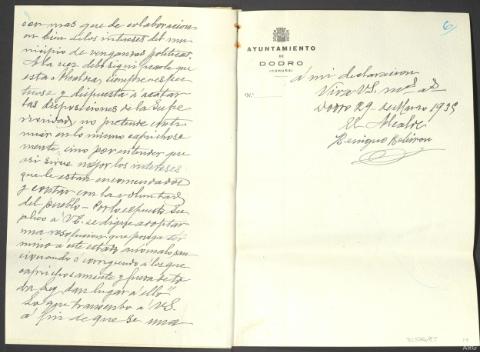 con mas que de colaboracion
en bien de los intereses del mu-
nicipio de venganzas politicas.
A la vez debo significarle que
esta Alcaldia, siempre respe-
tuosa y dispuesta a acatar
las disposiciones de la Supe-
rioridad, no pretende conti-
nuar en lo mismo caprichosa-
mente, sino por entender que
asi sirve mejor los intereses
que le estan encomendados
y contar con la voluntad
del pueblo - Por lo expuesto Su-
plico a V.S. se digne adoptar
una resolucion que ponga ter-
mino a este estado anomalo, san-
cionando o corrigiendo a los que
caprichosamente y fuera de to-
da ley dan lugar a ello"
Lo que transmito a V.S.
a fin de que se una
6
AYUNTAMIENTO
DE
DODRO
(CORUÑA)
a mi declaracion
Viva V.S. m⁠s. a⁠s.
Dodro 29 de Marzo 1935
El Alcalde
Enrique